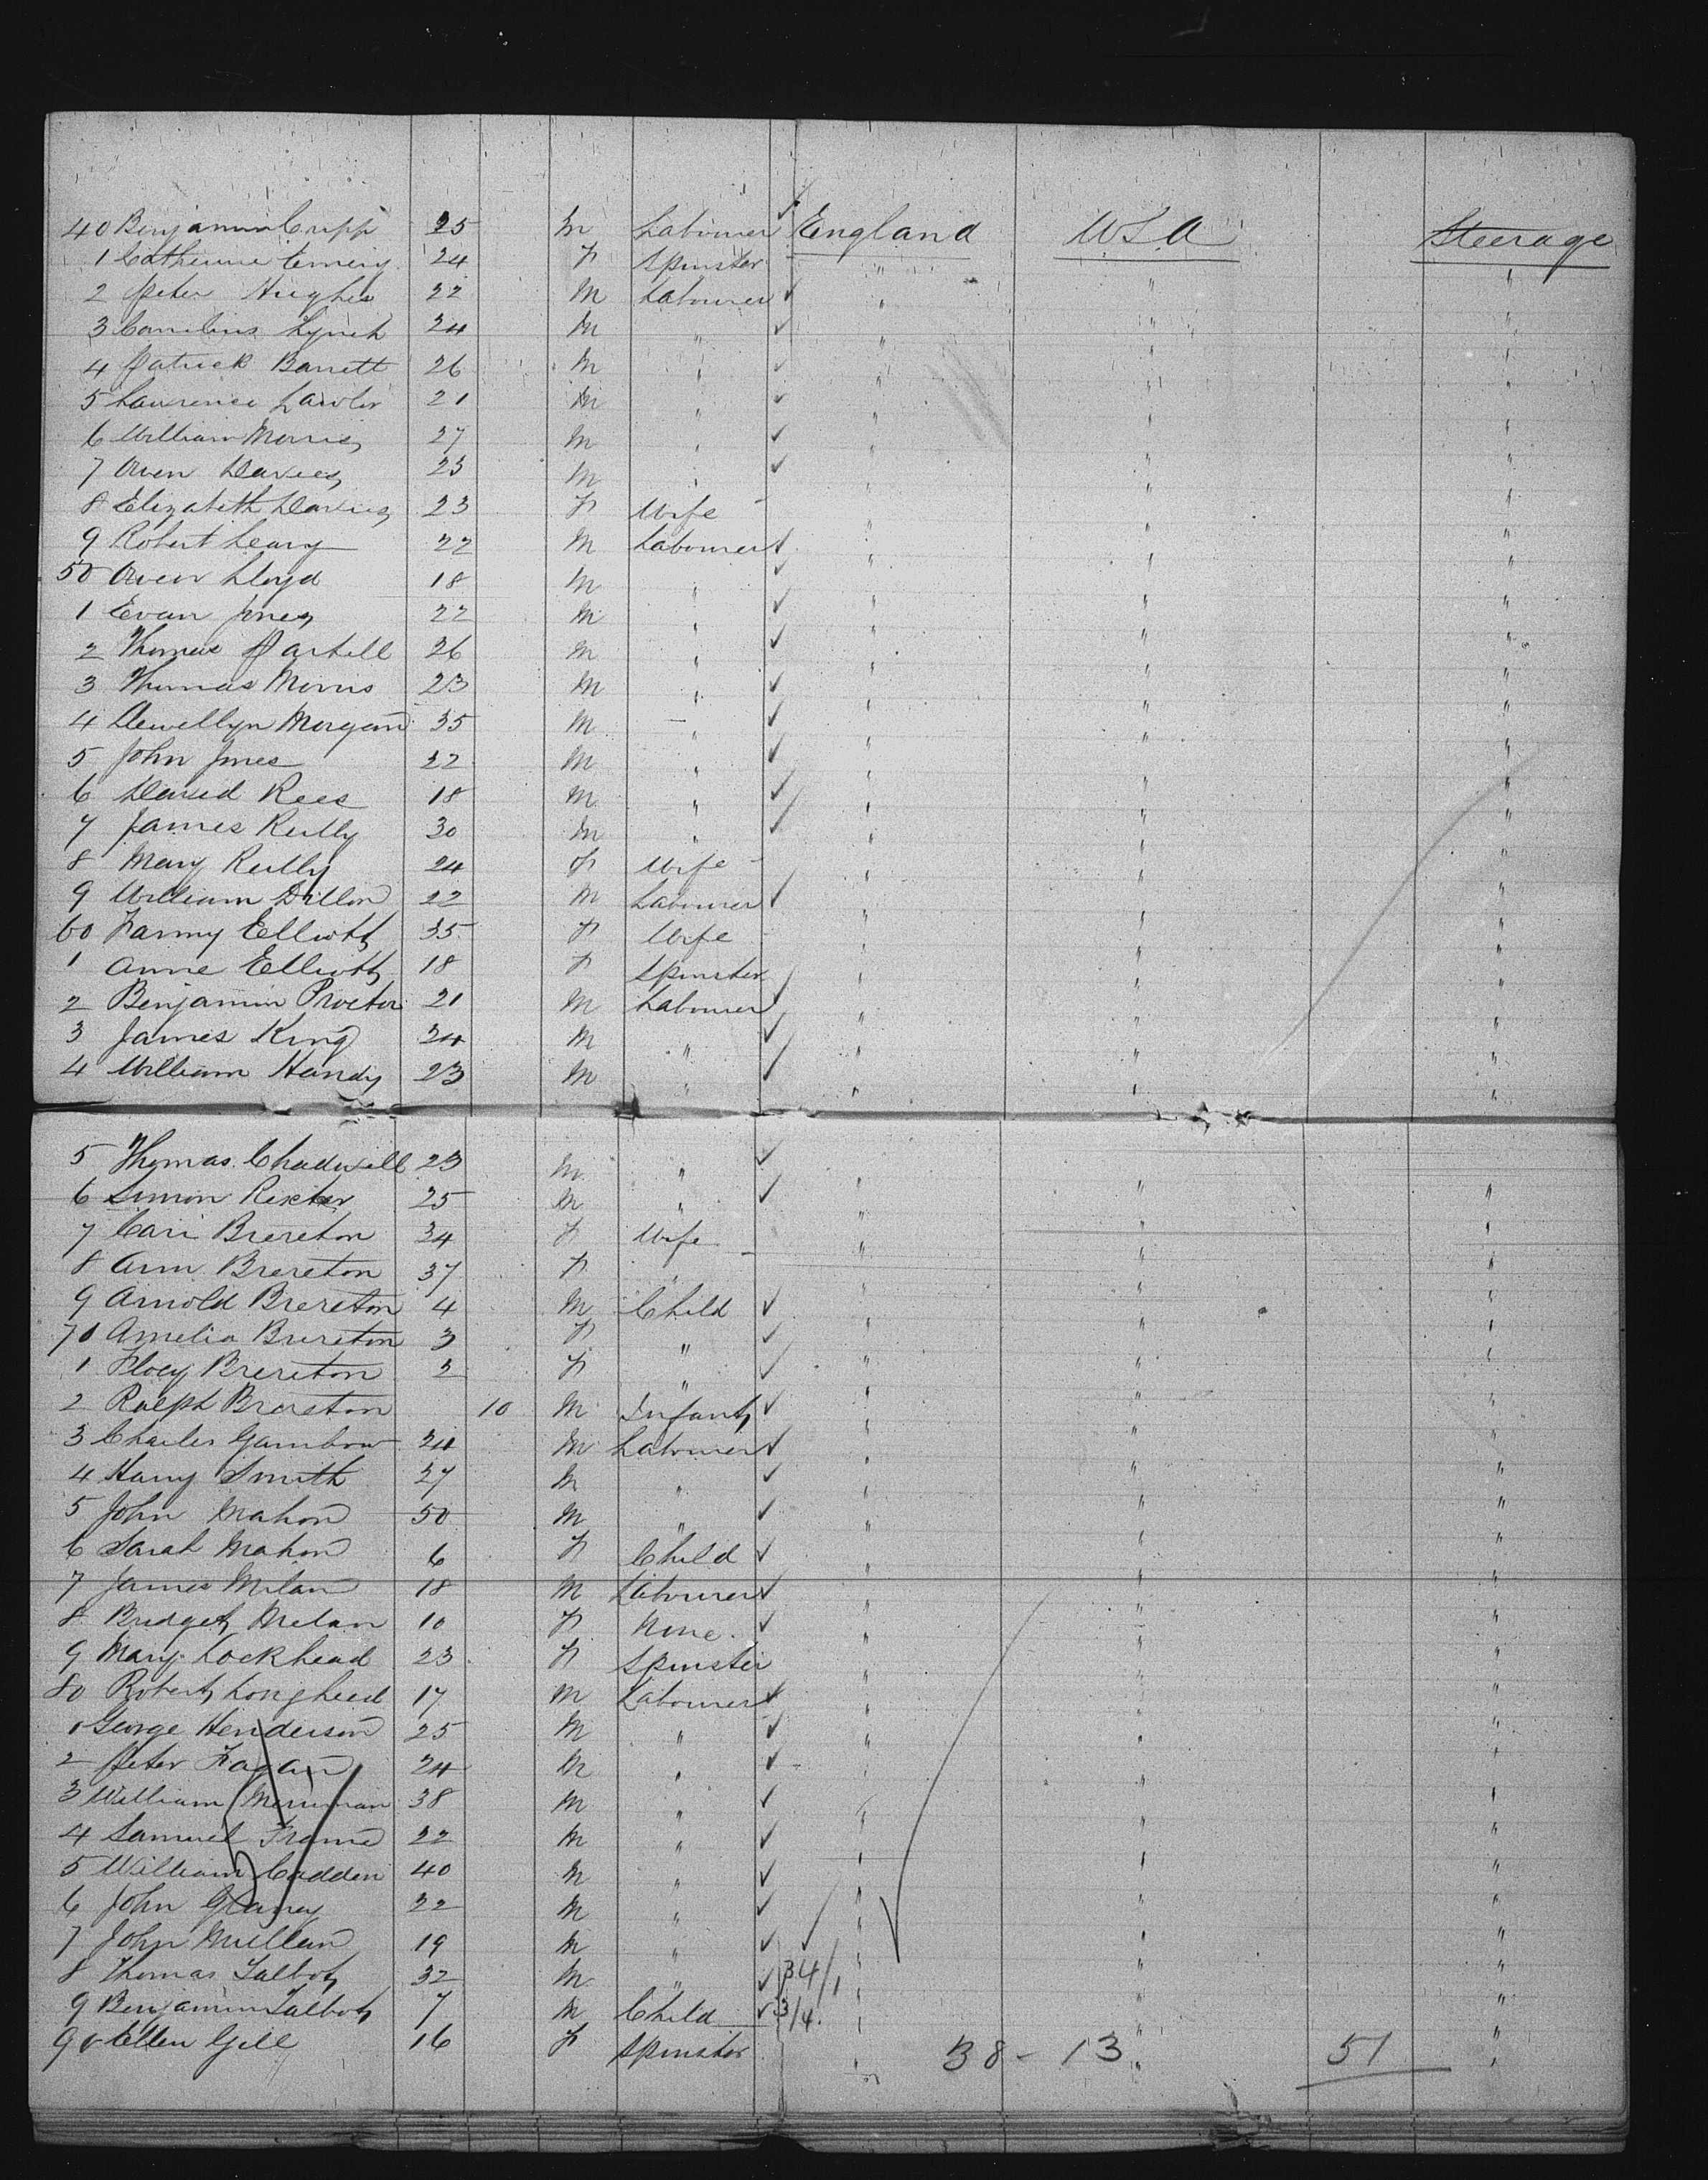 40 Benjamin Cripp 25 M Labourer ✓ England USA Steerage
1 Catherine Emery 24 F Spinster " " "
2 Peter Hughes 22 M Labourer ✓ " " "
3 Cornelius Lynch 24 M " ✓ " " "
4 Patrick Barrett 26 M " ✓ " " "
5 Laurence Lawlor 21 M " ✓ " " "
6 William Morris 27 M " ✓ " " "
7 Owen Davies 23 M " ✓ " " "
8 Elizabeth Davies 23 F Wife - " " "
9 Robert Leary 22 M Labourer ✓ " " "
50 Owen Lloyd 18 M " ✓ " " "
1 Evan Jones 22 M " ✓ " " "
2 Thomas 26 M " ✓ " " "
3 Thomas Morris 23 M " ✓ " " "
4 Llewellyn Morgan 35 M " ✓ " " "
5 John Jones 22 M " ✓ " " "
6 David Rees 18 M " ✓ " " "
7 James Reilly 30 M " ✓ " " "
8 Mary Reilly 24 F Wife - " " "
9 William Dillon 22 M Labourer ✓ " " "
60 Fanny Elliott 35 F Wife - " " "
1 Anne Elliott 18 F Spinster " " "
2 Benjamin Proctor 21 M Labourer ✓ " " "
3 James King 24 M " ✓ " " "
4 William Handy 23 M " ✓ " " "
5 Thomas Chadwell 23 M " ✓ " " "
6 Simon 25 M " ✓ " " "
7 Brereton 34 F Wife - " " "
8 Ann Brereton 37 F " " " "
9 Arnold Brereton 4 M Child ✓ " " "
70 Amelia Brereton 3 F " ✓ " " "
1 Brereton 2 F " ✓ " " "
2 Ralph Brereton 10 M Infant ✓ " " "
3 Charles 24 M Labourer ✓ " " "
4 Harry Smith 27 M " ✓ " " "
5 John Mahon 50 M " ✓ " " "
6 Sarah Mahon 6 F Child ✓ " " "
7 James Milan 18 M Labourer ✓ " " "
8 Bridget Milan 10 F None ✓ " " "
9 Mary Lockhead 23 F Spinster " " "
80 Robert Longheed 17 M Labourer ✓ " " "
1 George Henderson 25 M " ✓ " " "
2 Peter Fagan 24 M " ✓ " " "
3 William Merriman 38 M " ✓ " " "
4 Samuel Frame 22 M " ✓ " " "
5 William Cadden 40 M " ✓ " " "
6 John 22 M " ✓ " " "
7 John Mullen 19 M " ✓ " " "
8 Thomas Talbot 32 M " ✓ 34/1 " " "
9 Benjamin Talbot 7 M Child ✓ 3/4 " " "
90 Ellen Gill 16 F Spinster " " "
38 - 13 51